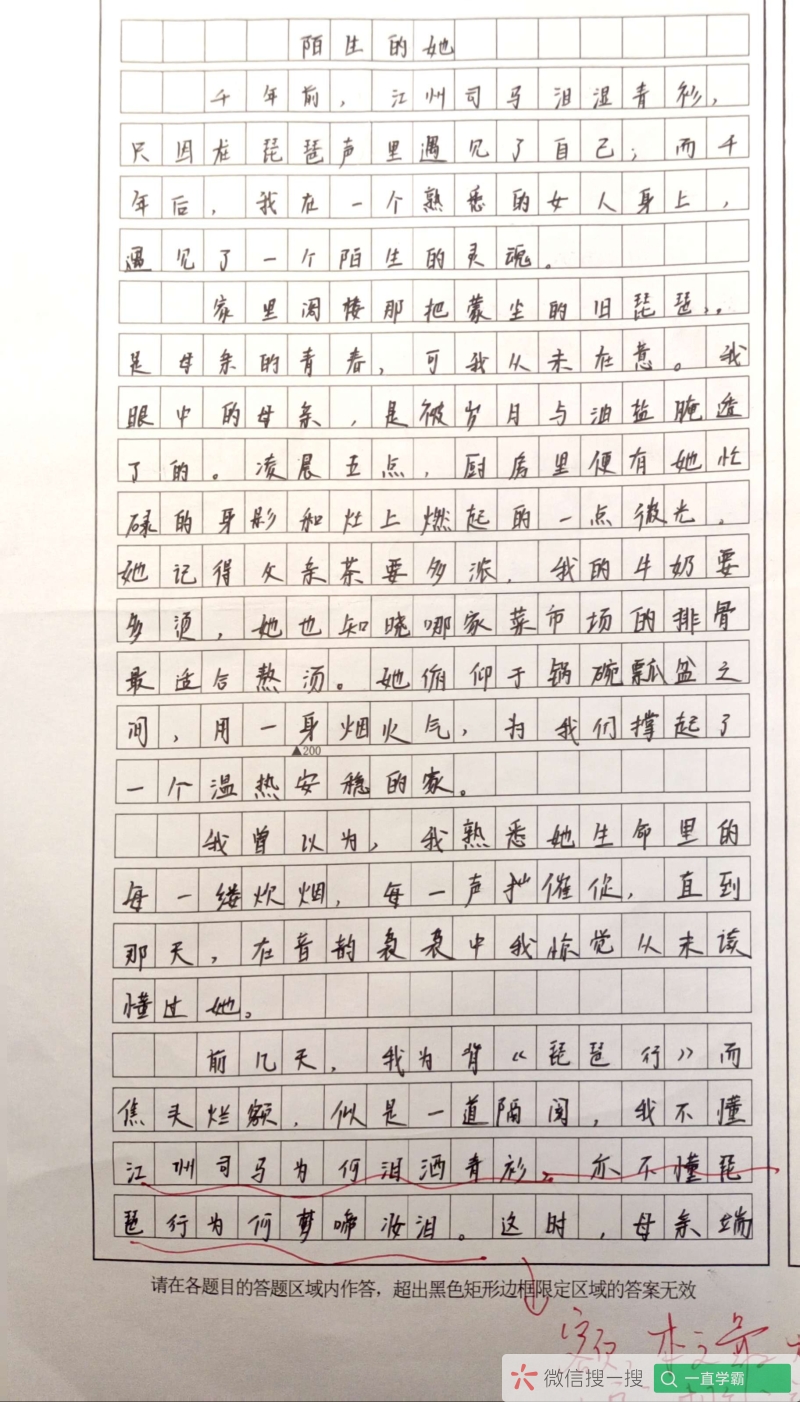 陌生的她
千年前，江州司马泪湿青衫，
只因在琵琶声里遇见了自己；而千
年后，我在一个熟悉的女人身上，
遇见了一个陌生的灵魂。
家里阁楼那把蒙尘的旧琵琶，
是母亲的青春，可我从未在意。我
眼中的母亲，是被岁月与油盐腌透
了的。凌晨五点，厨房里便有她忙
碌的身影和灶上燃起的一点微光，
她记得父亲茶要多浓，我的牛奶要
多烫，她也知晓哪家菜市场的排骨
最适合熬汤。她俯仰于锅碗瓢盆之
间，用一身烟火气，为我们撑起了
▲200
一个温热安稳的家。
我曾以为，我熟悉她生命里的
每一缕炊烟，每一声催促，直到
那天，在音韵袅袅中我惊觉从未读
懂过她。
前几天，我为背《琵琶行》而
焦头烂额，似是一道隔阂，我不懂
江州司马为何泪洒青衫，亦不懂琵
琶行为何梦啼妆泪。这时，母亲端
请在各题目的答题区域内作答，超出黑色矩形边框限定区域的答案无效
微信搜一搜 一直学霸